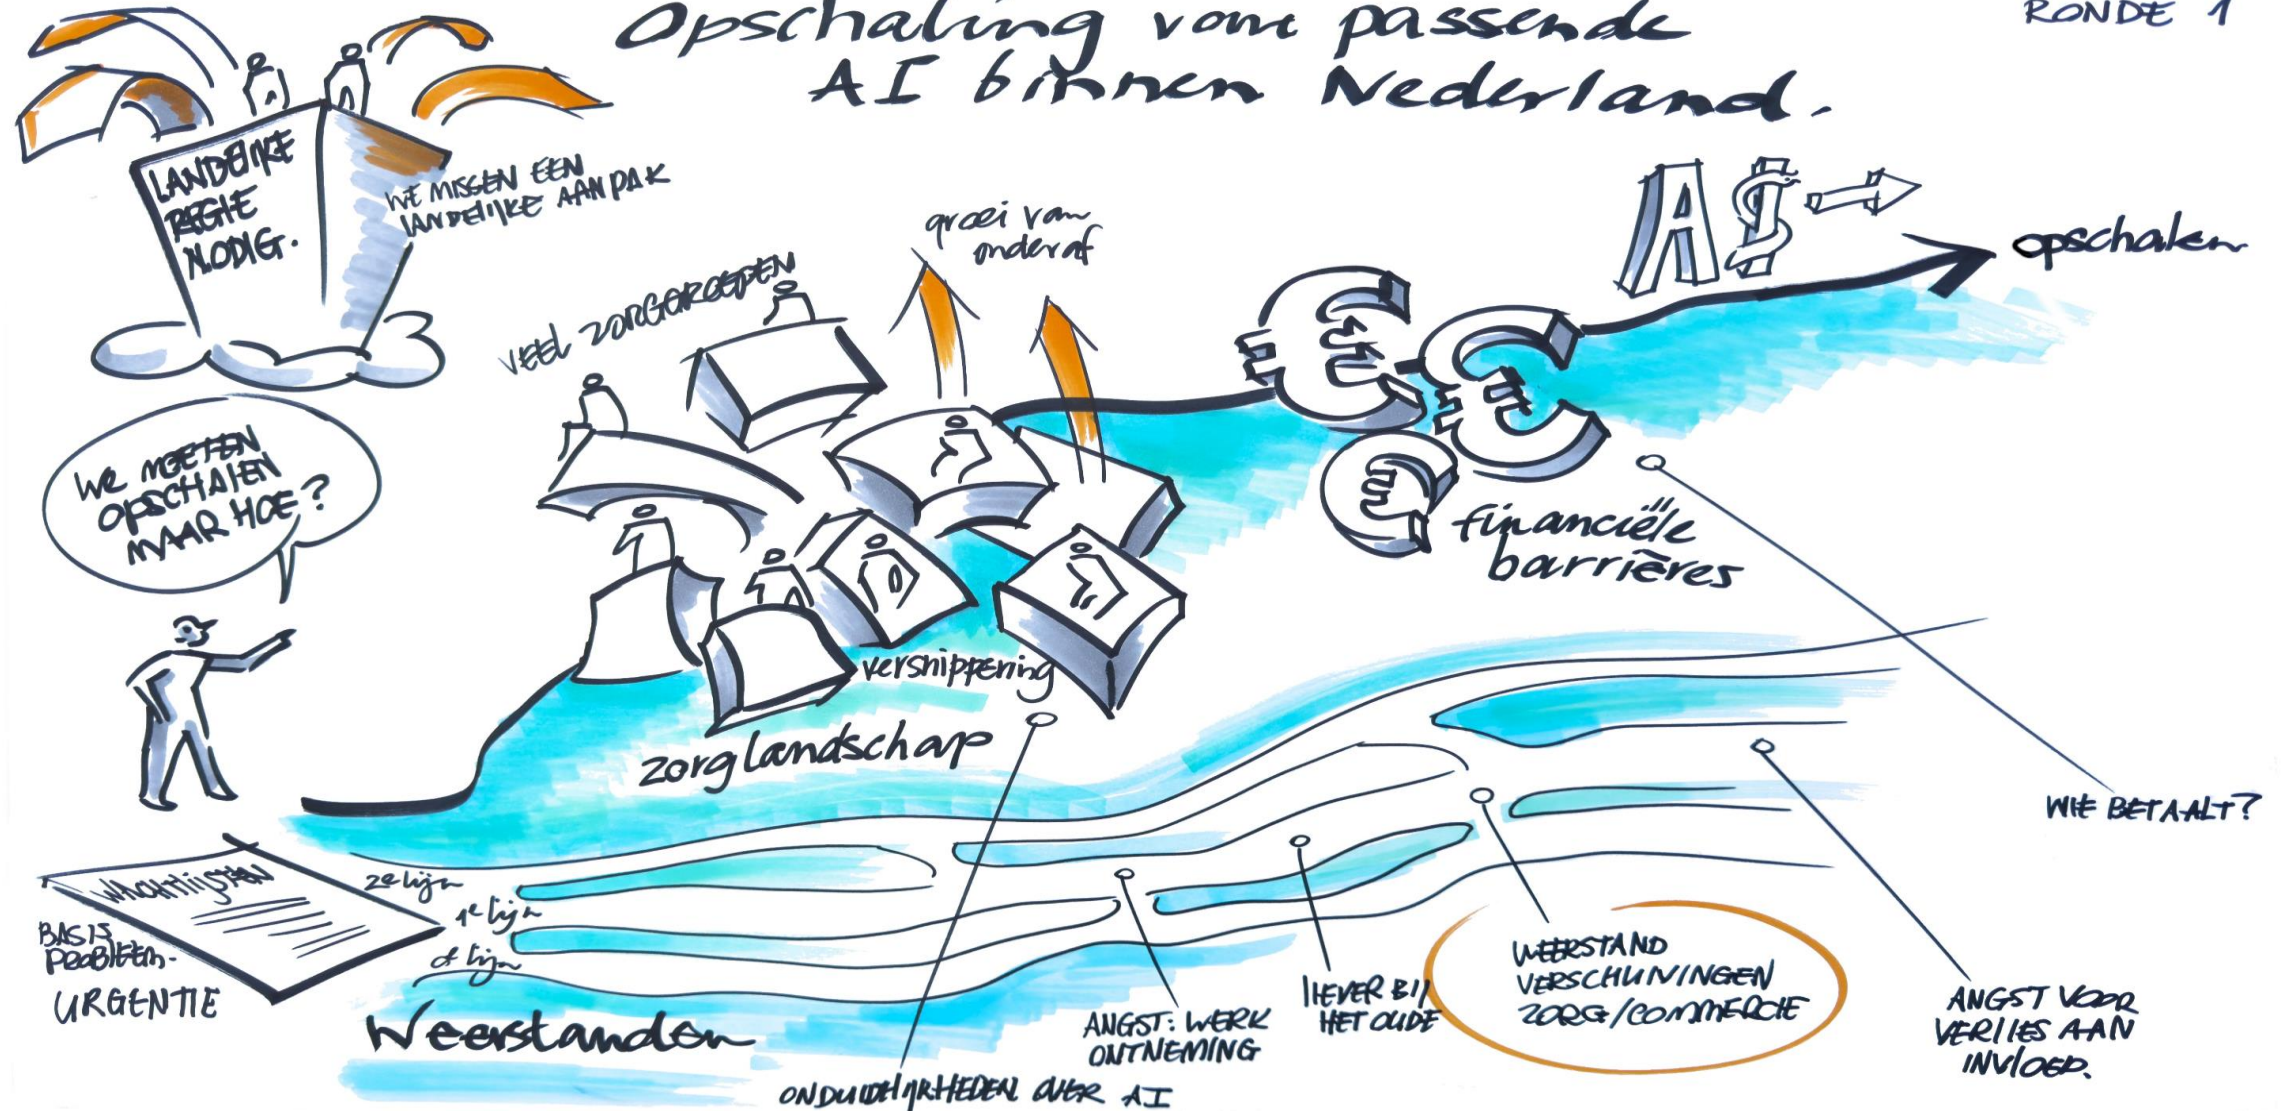 Opschaling van passende
AI binnen Nederland.
RONDE 1
LANDELIJKE
REGIE
NODIG.
WE MISSEN EEN
LANDELIJKE AANPAK
VEEL ZORGGROEPEN
groei van
onderaf
AI
opschalen
We MOETEN
OPSCHALEN
MAAR HOE?
financiële
barrières
versnippering
zorglandschap
WIE BETAALT?
WACHTLIJSTEN
BASIS
PROBLEEM-
URGENTIE
2e lijn
1e lijn
0e lijn
Weerstanden
ONDUIDELIJKHEDEN OVER AI
ANGST: WERK
ONTNEMING
LIEVER BIJ
HET OUDE
WEERSTAND
VERSCHUIVINGEN
ZORG/COMMERCIE
ANGST VOOR
VERLIES AAN
INVLOED.